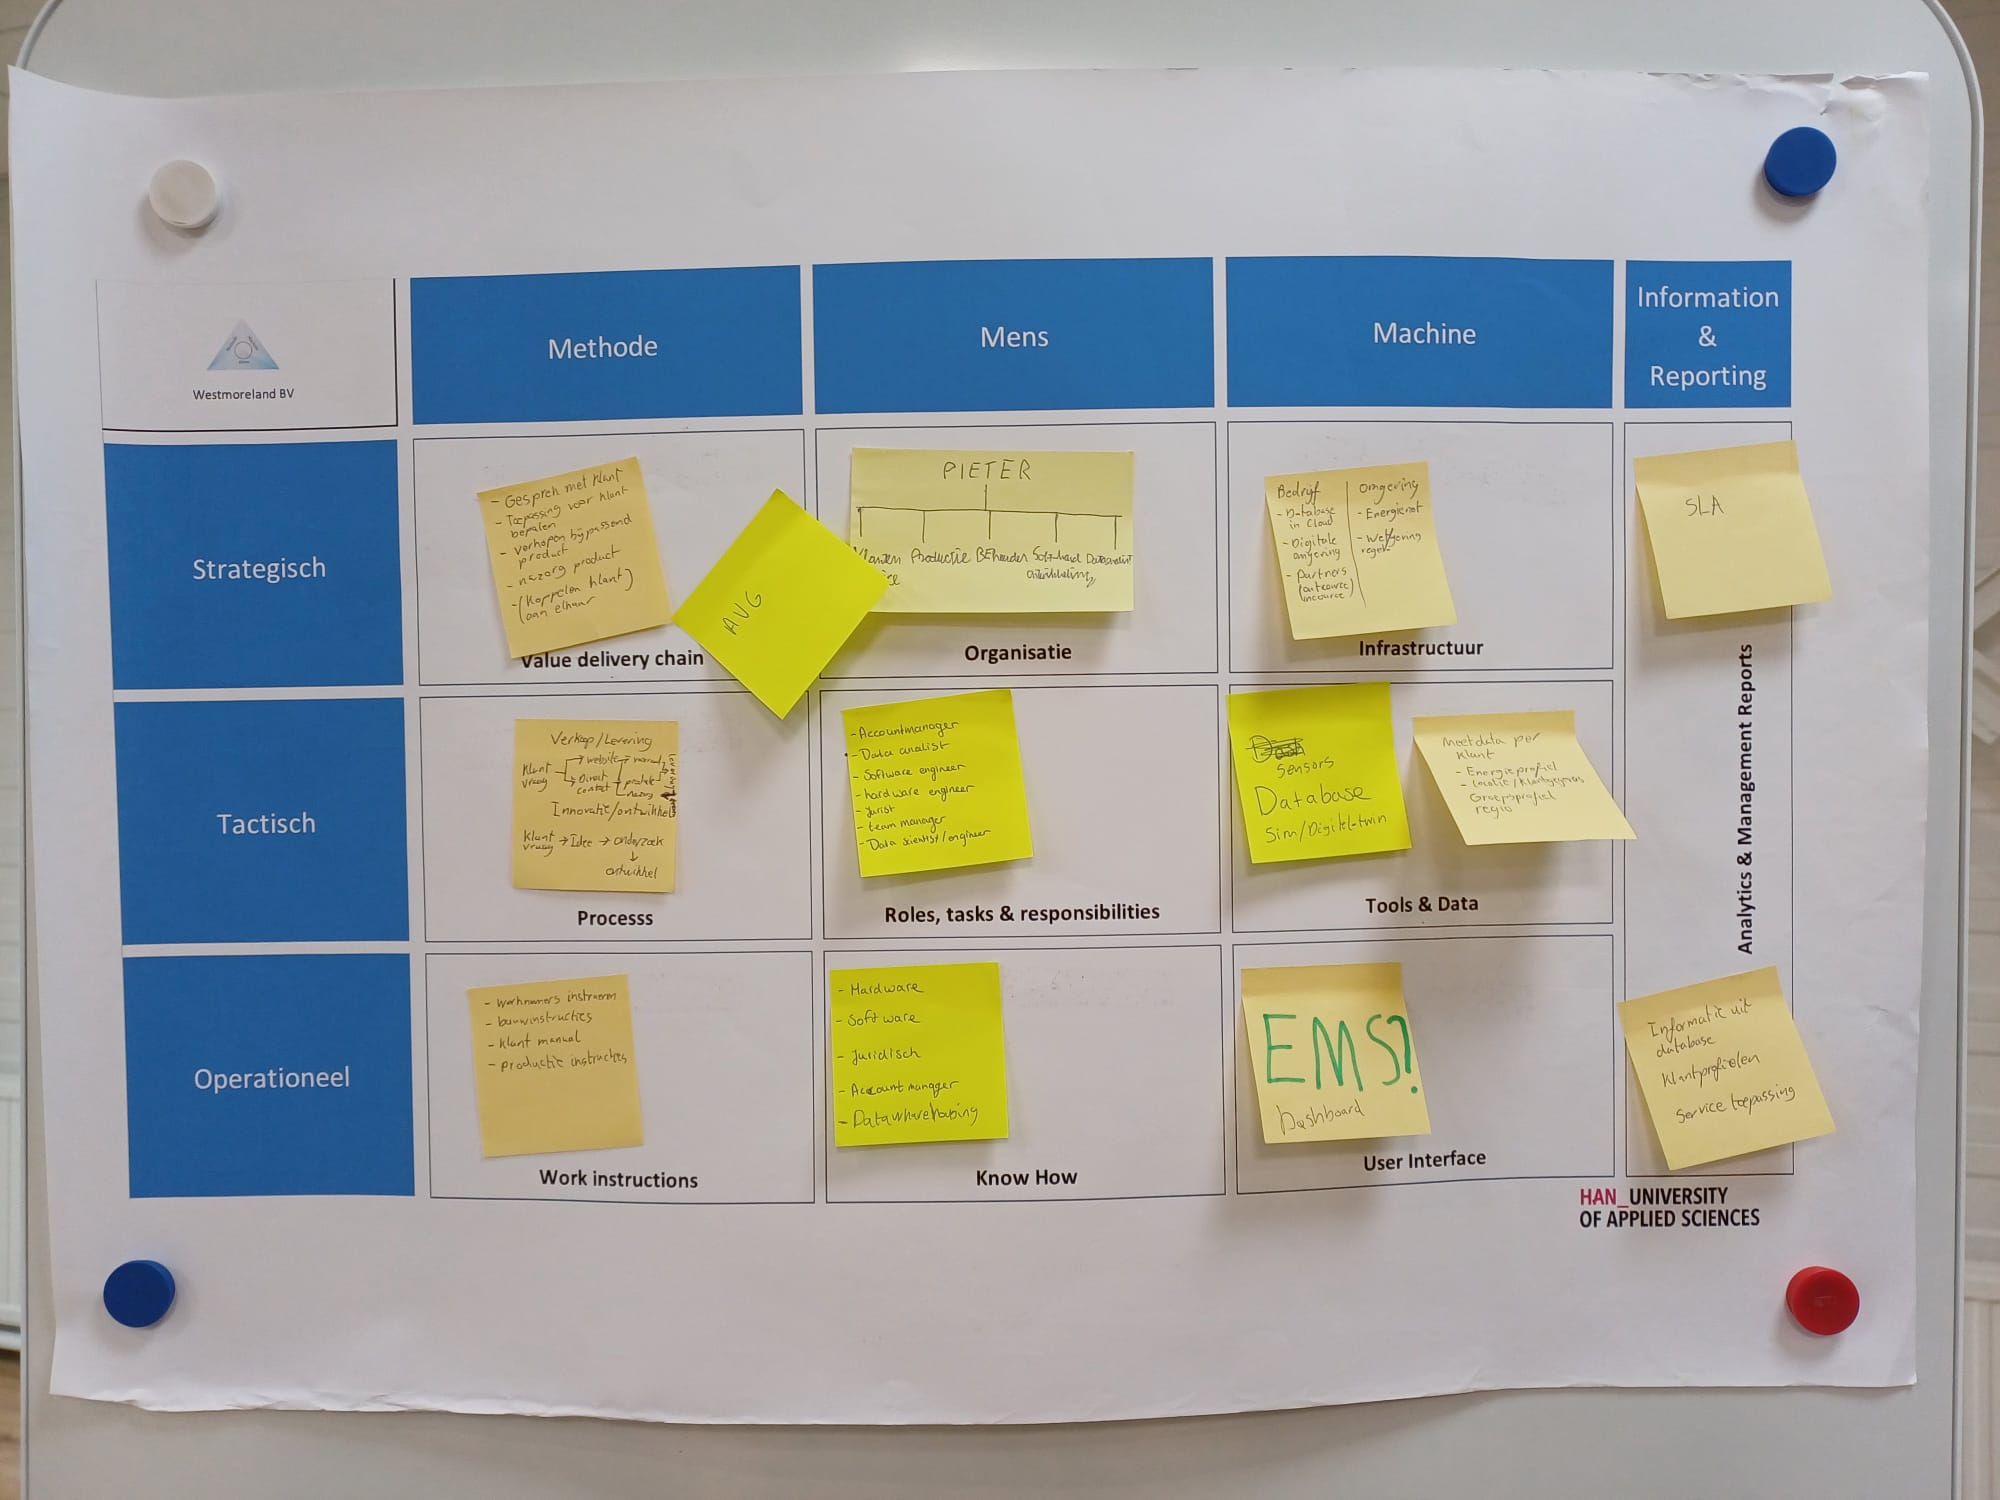 Westmoreland BV
Methode
Mens
Machine
Information
&
Reporting
Strategisch
- Gesprek met klant
- Toepassing voor klant
bepalen
- verkopen bijpassend
product
- nazorg product
- (Koppelen klant)
(aan elkaar
Value delivery chain
AVG
PIETER
Klanten Productie BEheerder Soft-hard Dataanalist
ontwikkeling
Organisatie
Bedrijf
- Database
in Cloud
- Digitale
- Partners
(outsource)
insource
Omgeving
- Energienet
- Wetgeving
regels
Infrastructuur
SLA
Tactisch
Verkoop/Levering
Klant
vraag
website
Direct
contact
Innovatie/ontwikkel
Klant
vraag → Idee → onderzoek
↓
ontwikkel
Processs
- Accountmanager
- Data analist
- Software engineer
- hardware engineer
- Jurist
- team manager
- Data scientist/engineer
Roles, tasks & responsibilities
Sensors
Database
Sim/Digitel-twin
Meetdata per
klant
- Energieprofiel
- Locatie/Klantgegevens
Groepsprofiel
regio
Tools & Data
Analytics & Management Reports
Operationeel
- werknemers instrueren
- bouwinstructies
- klant manual
- productie instructies
Work instructions
- Hardware
- Software
- Juridisch
- Account manager
- Datawharehousing
Know How
EMS?
Dashboard
User Interface
Informatie uit
database
Klantprofielen
Service toepassing
HAN_UNIVERSITY
OF APPLIED SCIENCES